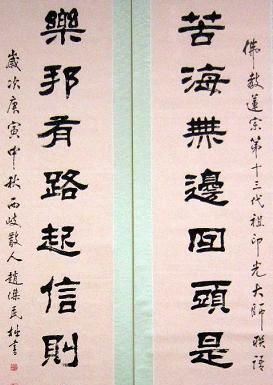 佛教蓮宗第十三代祖印光大師聯語
苦海無邊回頭是
樂邦有路起信則
歲次庚寅中秋西岐散人趙傑民拙書